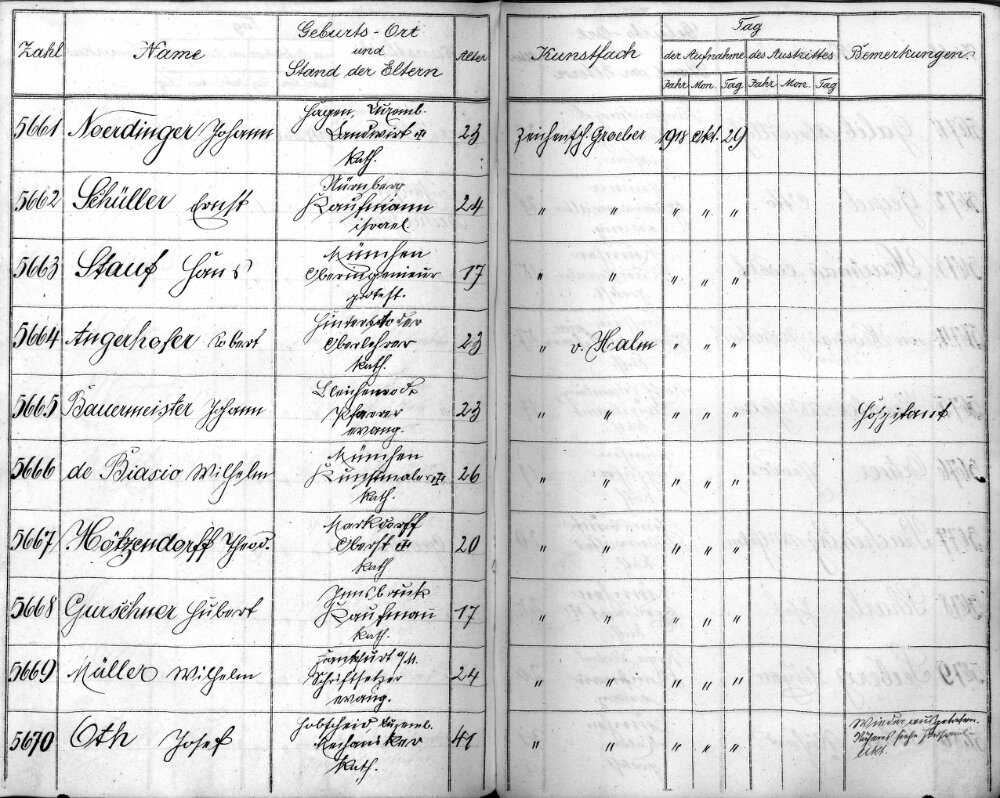 Zahl Name Geburts-Ort und Stand der Eltern Alter Kunstfach Tag der Aufnahme des Austrittes Bemerkungen.
Jahr Mon. Tag Jahr Mon. Tag
5661 Noerdinger Johann Hagen, Luxemb. 23 Zeichensch. Groeber 1918 Okt. 29
Landwirt
kath.
5662 Schüller Ernst Nürnberg 24 " " " " "
Kaufmann
israel.
5663 Stauf Hans München 17 " " " " "
Oberingenieur
protest.
5664 Angerhofer Robert 23 " v. Halm " " "
Oberlehrer
kath.
5665 Bauermeister Johann Bleichenrode 23 " " " " " Hospitant
Pfarrer
evang.
5666 de Biasio Wilhelm München 26 " " " " "
Kunstmaler
kath.
5667 Hötzendorff Theod. Markdorff 20 " " " " "
Oberst
kath
5668 Gurschner Hubert Innsbruck 17 " " " " "
Kaufmann
kath.
5669 Müller Wilhelm Frankfurt a/M. 24 " " " " "
Schriftsetzer
evang.
5670 Oth Josef Hobscheid, Luxemb. 41 " " " " " Wieder ausgetreten.
Mechaniker Näheres siehe Personal-
kath. akt.